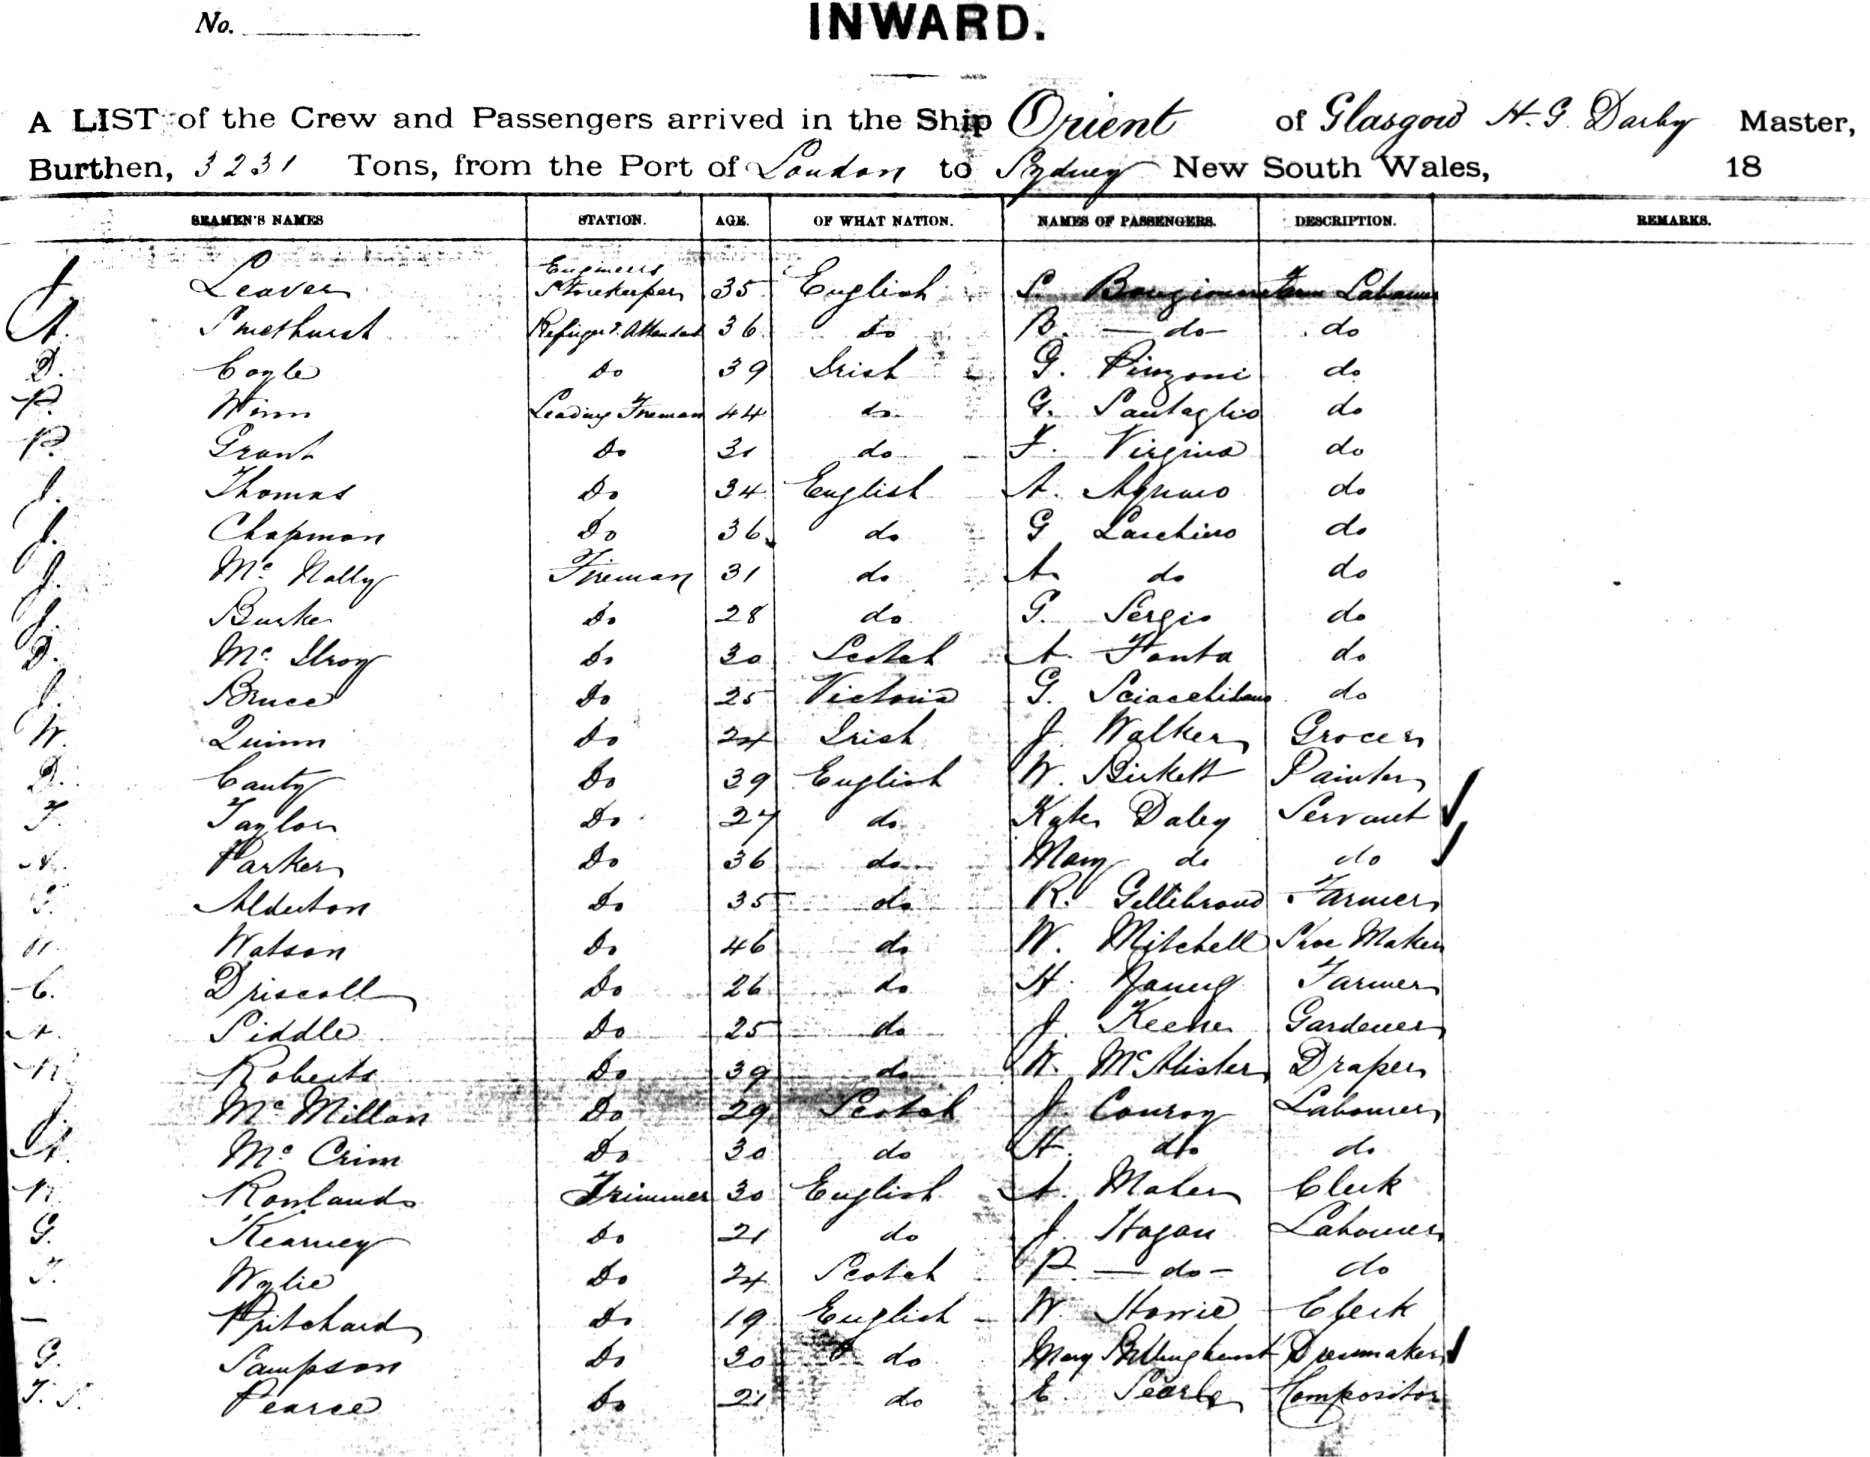 No.
INWARD.
A LIST of the Crew and Passengers arrived in the Ship Orient of Glasgow H. G. Darby Master,
Burthen, 3231 Tons, from the Port of London to Sydney New South Wales, 18
SEAMEN'S NAMES STATION. AGE. OF WHAT NATION. NAMES OF PASSENGERS. DESCRIPTION. REMARKS.
J. Leaver Engineers Storekeeper 35 English S. Farm Labourer
A. Smethurst Refrigr. Attendant 36 do B. — do — do
D. Coyle do 39 Irish G. Pinzoni do
P. Winn Leading Fireman 44 do G. Santaglio do
P. Grant Do 31 do F. Virgina do
J. Thomas Do 34 English A. do
J. Chapman Do 36 do G Laschino do
J. Mc Nally Fireman 31 do A do do
J. Burke Do 28 do G. Sergio do
D. Mc Ilroy Do 30 Scotch A. Fonta do
J. Bruce Do 25 Victoria G. do
W. Quinn Do 24 Irish J. Walker Grocer
D. Canty Do 39 English W. Birkett Painter
F. Taylor Do 27 do Kate Daley Servant
A. Parker Do 36 do Mary do do
G. Alderton Do 35 do R. Gellibrand Farmer
Watson Do 46 do W. Mitchell Shoe Maker
C. Driscoll Do 26 do H. Young Farmer
A. Siddle Do 25 do J. Keene Gardener
Roberts Do 39 do W. McAlister Draper
J. Mc Millan Do 29 Scotch J. Conroy Labourer
A. Mc Crim Do 30 do H. do do
Rowlands Trimmer 30 English A. Maher Clerk
G. Kearney Do 21 do J. Hogan Labourer
T. Wylie Do 24 Scotch P. — do — do
— Pritchard Do 19 English W. Howie Clerk
G. Sampson Do 30 do Mary Dressmaker
T. S. Pearce Do 21 do E. Searle Compositor